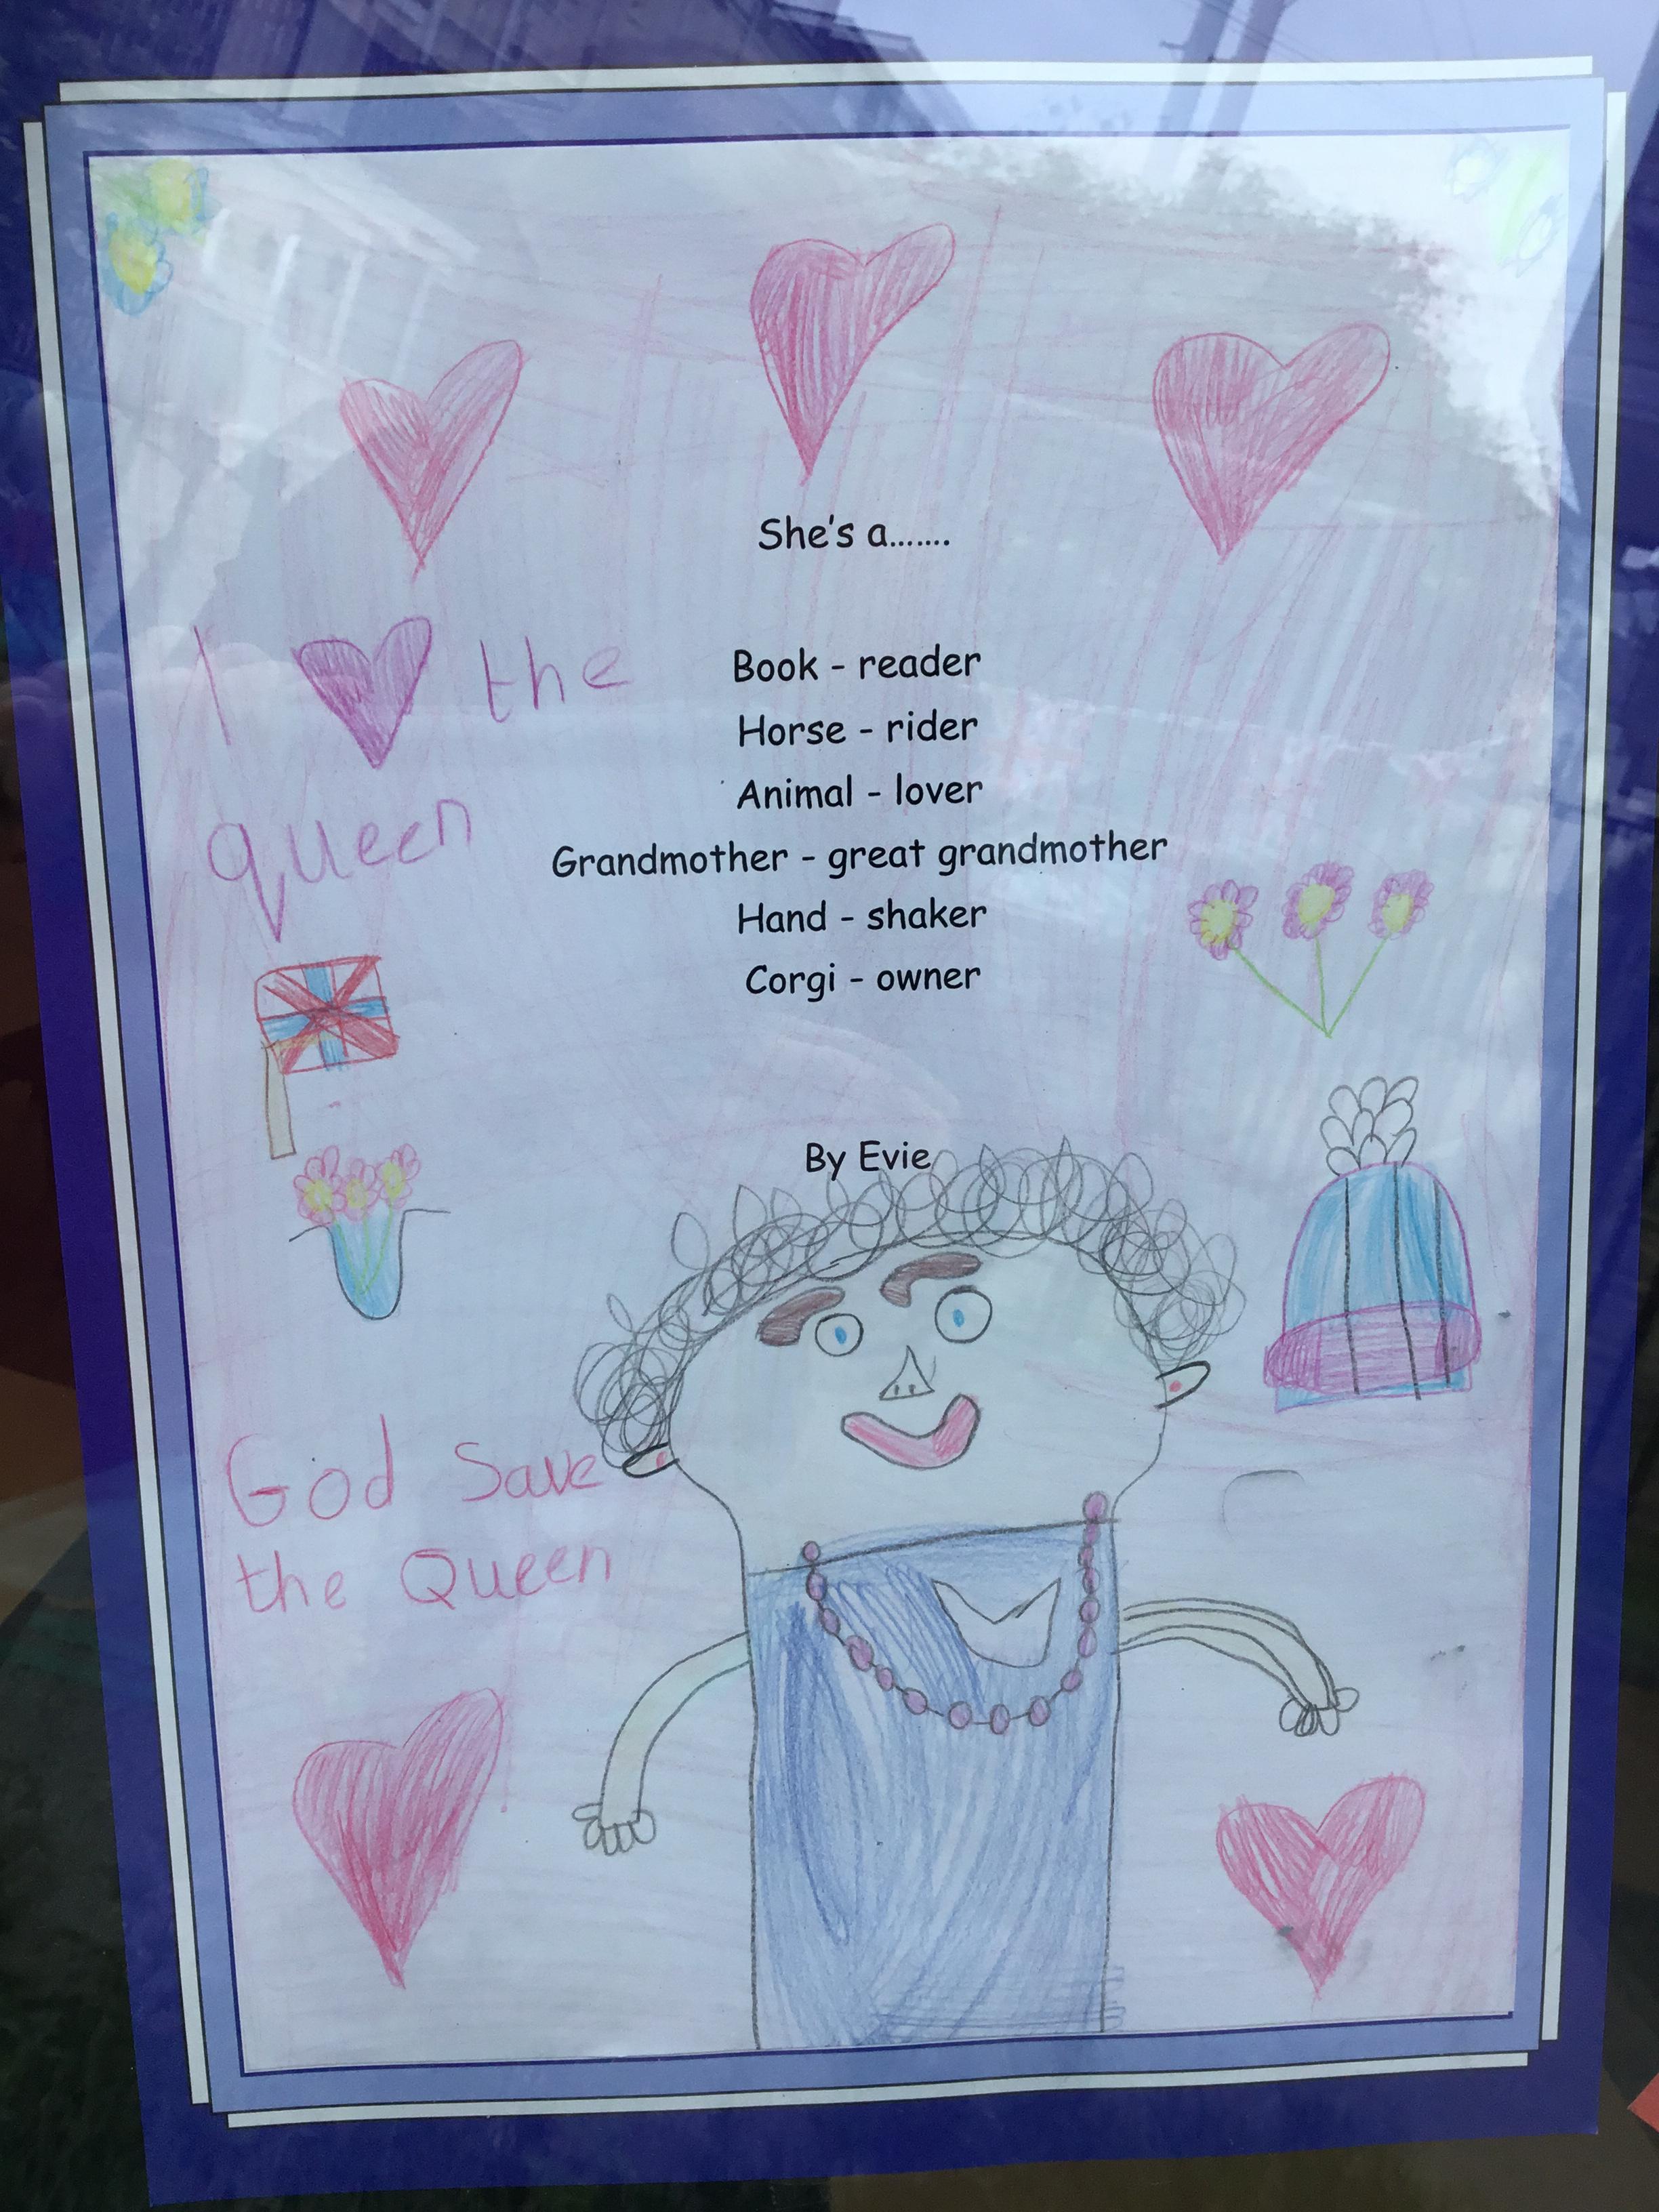 She's a.......
I the
queen
Book - reader
Horse - rider
Animal - lover
Grandmother - great grandmother
Hand - shaker
Corgi - owner
By Evie
God Save
the Queen